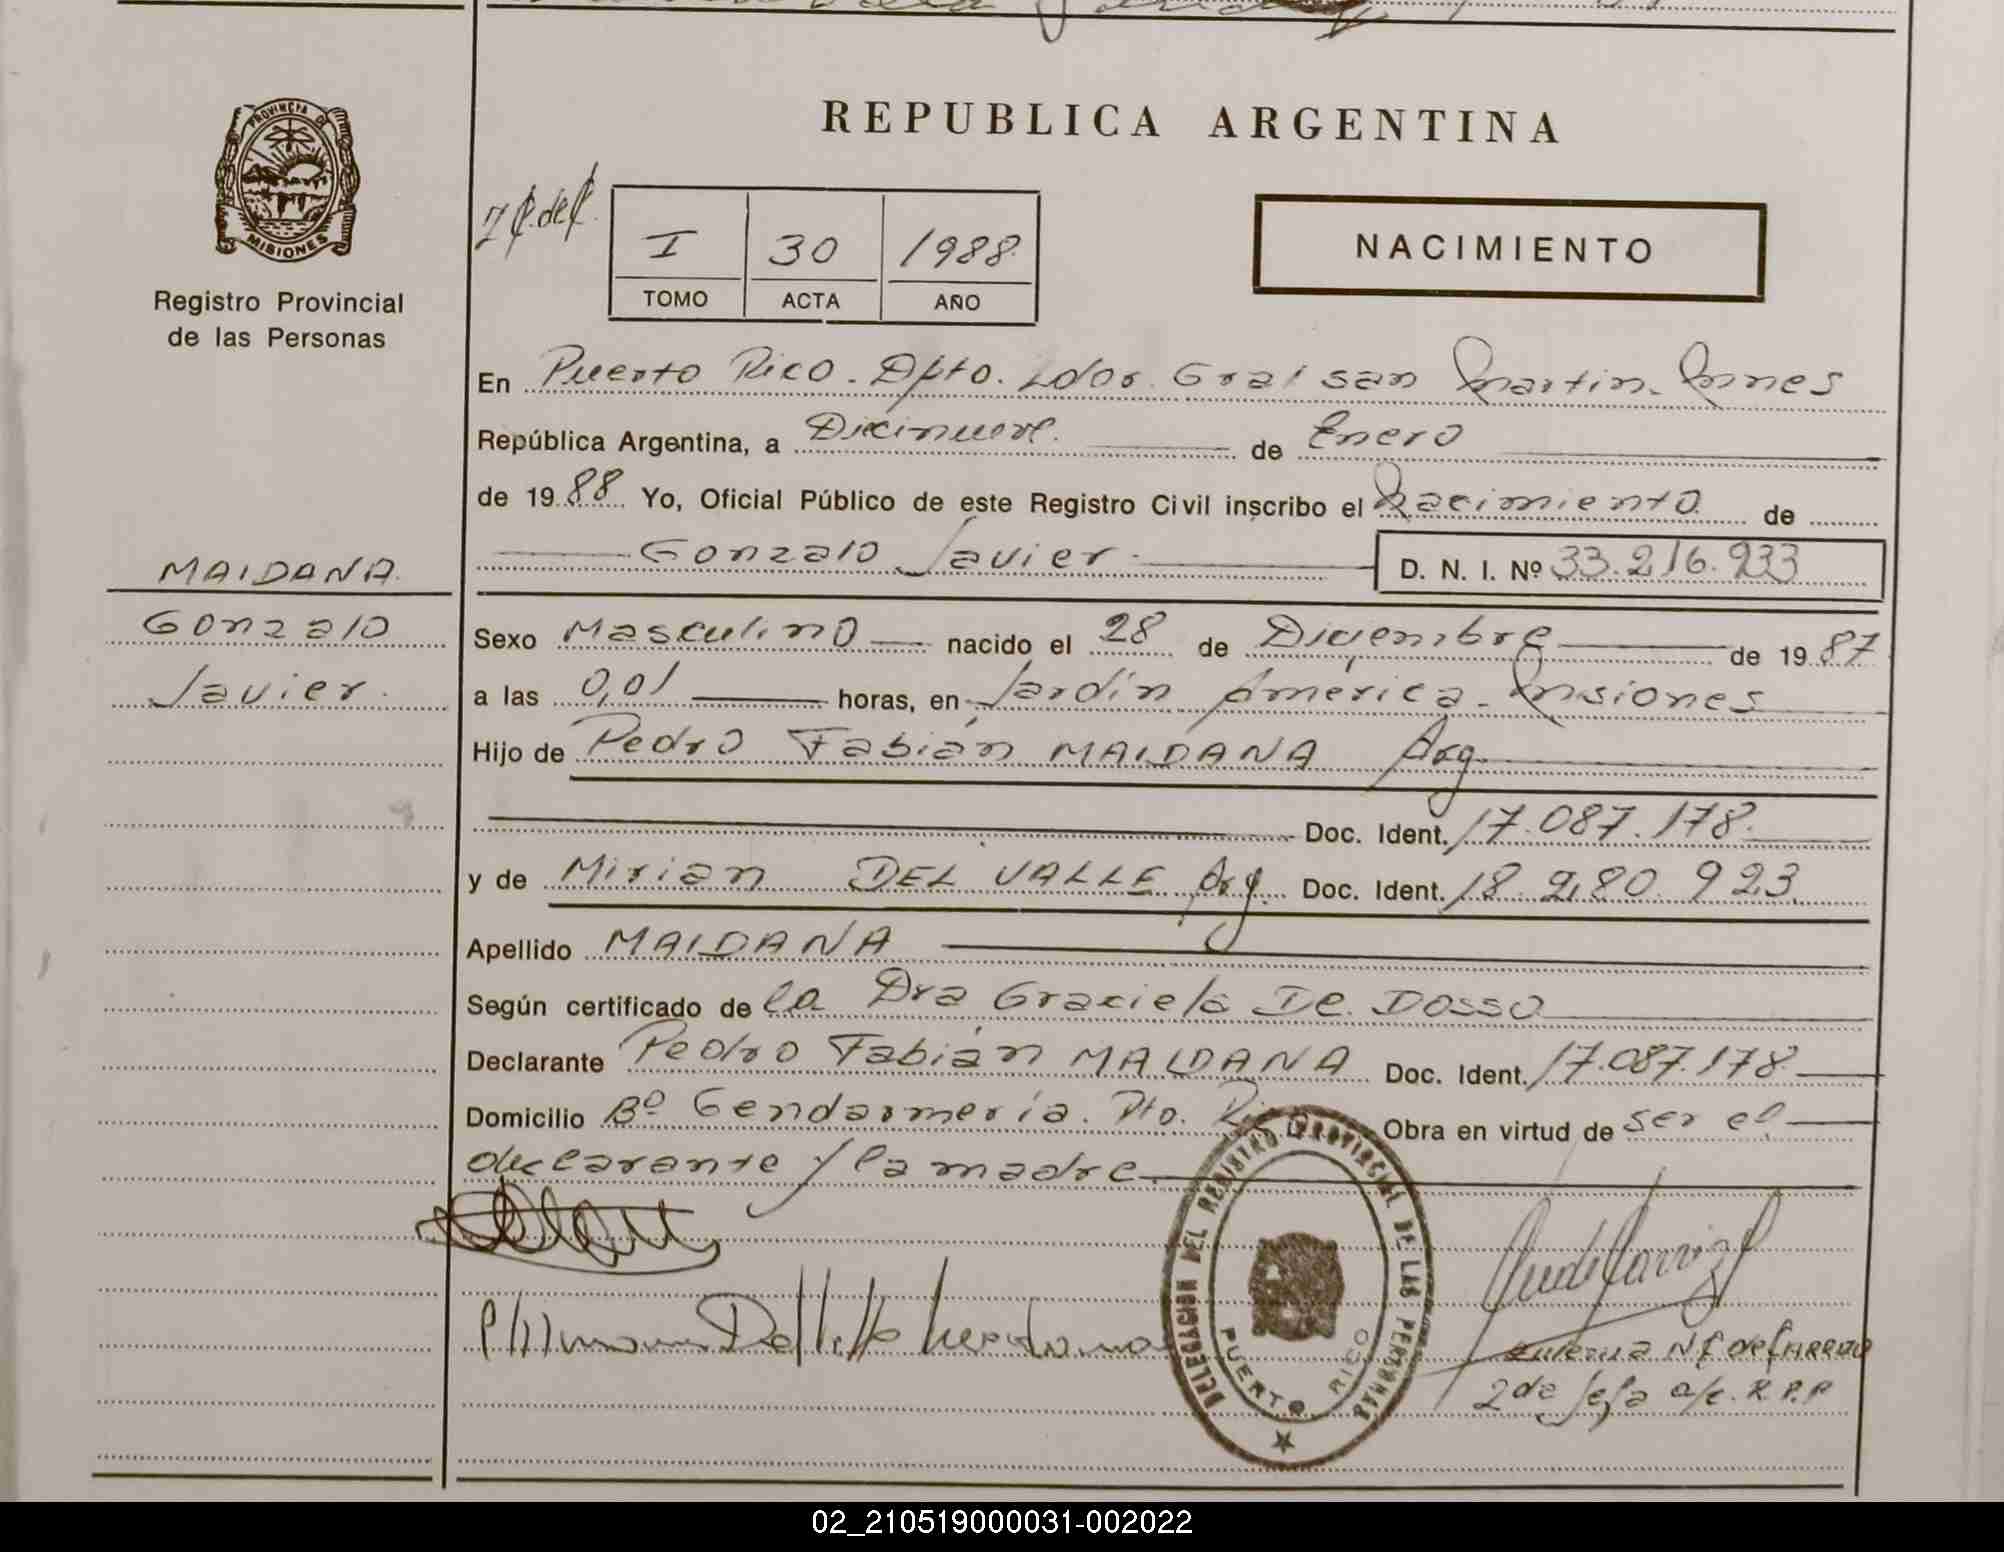 REPUBLICA ARGENTINA
PROVINCIA DE
MISIONES
Registro Provincial
de las Personas
I 30 1988
TOMO ACTA AÑO
NACIMIENTO
En Puerto Rico. Dpto. Ldor. Gral San Martín. Mnes
República Argentina, a Diecinueve. de Enero
de 1988 Yo, Oficial Público de este Registro Civil inscribo el Nacimiento de
Gonzalo Javier. D. N. I. Nº 33.216.933
MAIDANA
Gonzalo
Javier.
Sexo Masculino nacido el 28 de Diciembre de 1987
a las 0,01 horas, en Jardín América. Misiones
Hijo de Pedro Fabián MAIDANA Arg
Doc. Ident. 17.087.178.
y de Mirian DEL VALLE Arg. Doc. Ident. 18.280.923.
Apellido MAIDANA
Según certificado de la Dra Graciela De. Dosso
Declarante Pedro Fabián MAIDANA Doc. Ident. 17.087.178.
Domicilio Bº Gendarmería. Pto. Rico Obra en virtud de ser el
declarante y la madre
DELEGACION DEL REGISTRO PROVINCIAL DE LAS PERSONAS
PUERTO RICO
2da Jefa a/c. R.P.P
02_210519000031-002022